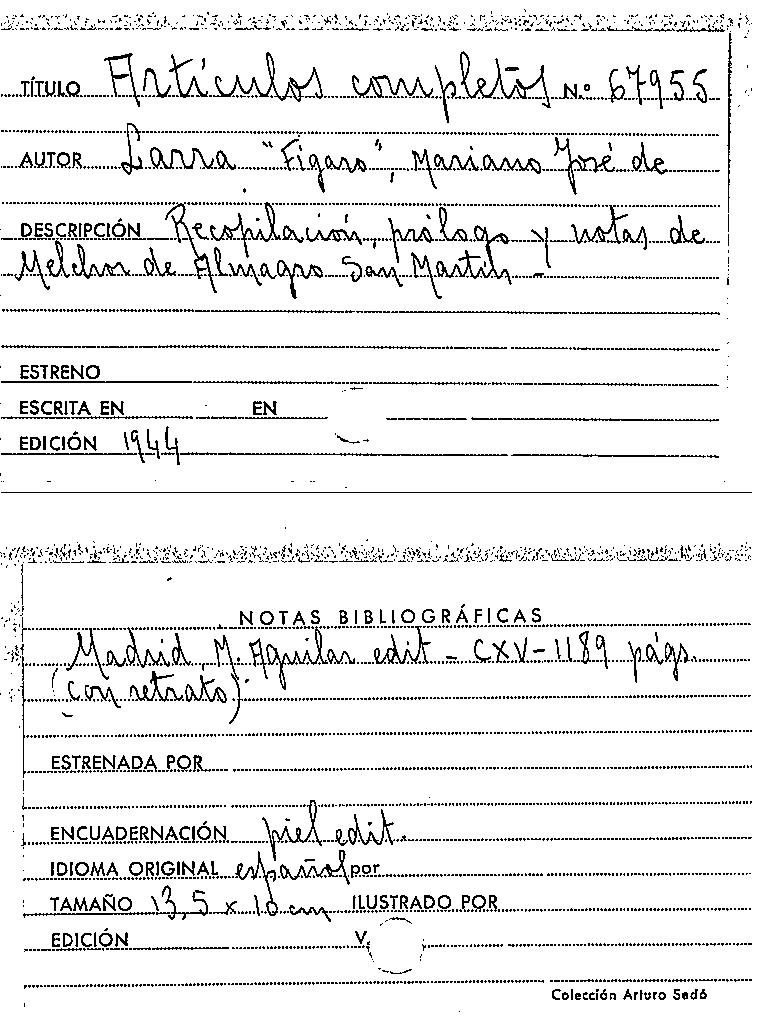 TÍTULO Artículos completos N.º 67955
AUTOR Larra "Fígaro", Mariano José de
DESCRIPCIÓN Recopilación, prólogo y notas de
Melchor de Almagro San Martín -
ESTRENO
ESCRITA EN EN
EDICIÓN 1944
NOTAS BIBLIOGRÁFICAS
Madrid, M. Aguilar edit - CXV-1189 págs.
(con retrato).
ESTRENADA POR
ENCUADERNACIÓN piel edit.
IDIOMA ORIGINAL español por
TAMAÑO 13,5 x 10 cm ILUSTRADO POR
EDICIÓN V.
Colección Arturo Sedó